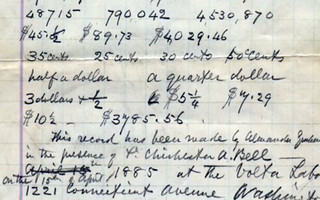 48715 790042 4530,870
$45.½ $89.73 $4029.46
35 cents 25 cents 30 cents 50 cents
half a dollar a quarter dollar
3 dollars + ½ $5¼ $7.29
$10½ $3785.56.
This record has been made by Alexander Graham
in the presence of Dr. Chichester A. Bell —
on the 15th of April 1885 at the Volta Labo
1221 Connecticut Avenue Washin